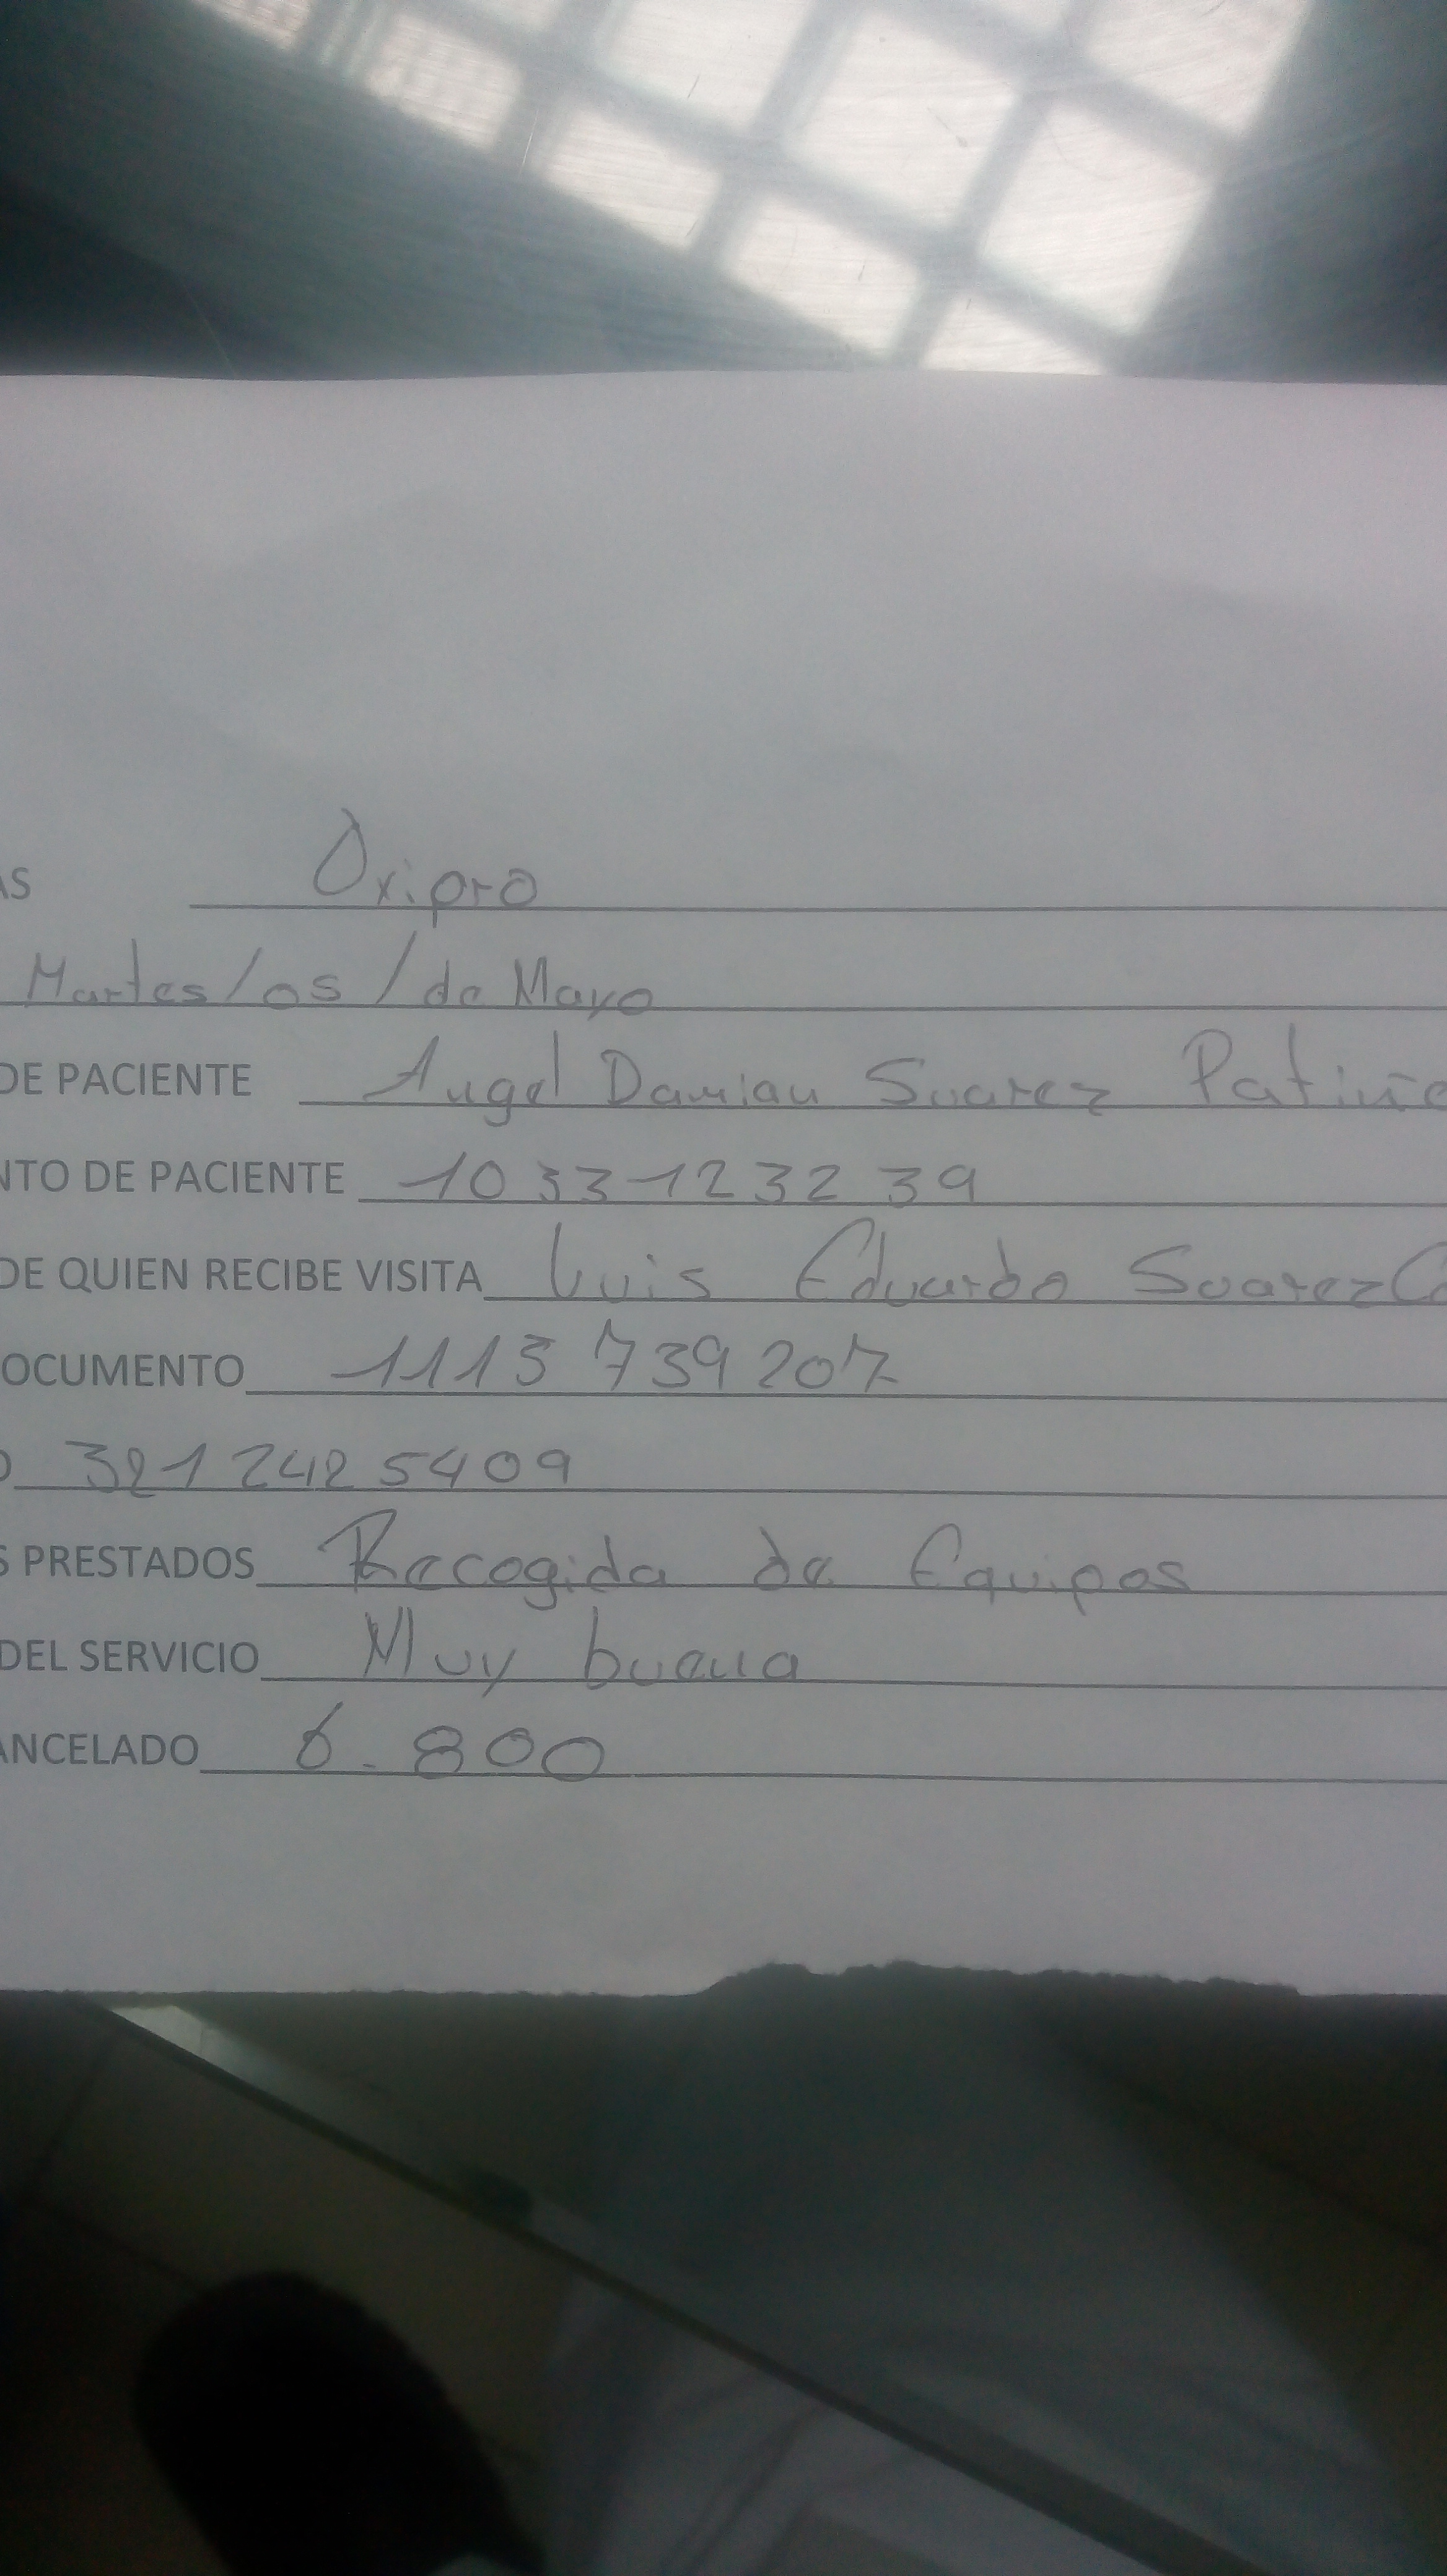 AS Oxipro
Martes/05/de Mayo
DE PACIENTE Angel Damian Suarez Patiño
NTO DE PACIENTE 1033123239
DE QUIEN RECIBE VISITA Luis Eduardo Suarez C
OCUMENTO 1113 739 207
O 321 242 5409
S PRESTADOS Recogida de Equipos
DEL SERVICIO Muy buena
ANCELADO 6.800